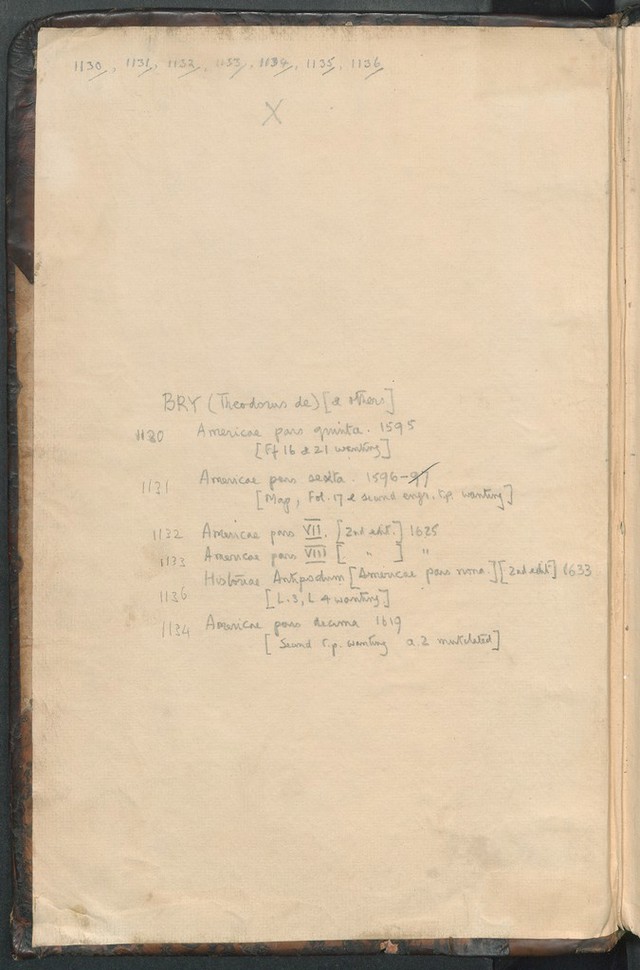 1130, 1131, 1132, 1133, 1134, 1135, 1136
X
BRY (Theodorus de) [& others]
1130 Americae pars quinta. 1595
[Ff 16 & 21 wanting]
1131 Americae pars sexta. 1596-97
[Map, Fol. 17 & second engr. t.p. wanting]
1132 Americae pars VII. [2nd edit.] 1625
1133 Americae pars VIII [ " ] "
Historiae Antipodum [Americae pars nona.] [2nd edit] 1633
1136 [L.3, L 4 wanting]
1134 Americae pars decima 1619
[Second t.p. wanting a.2 mutilated]